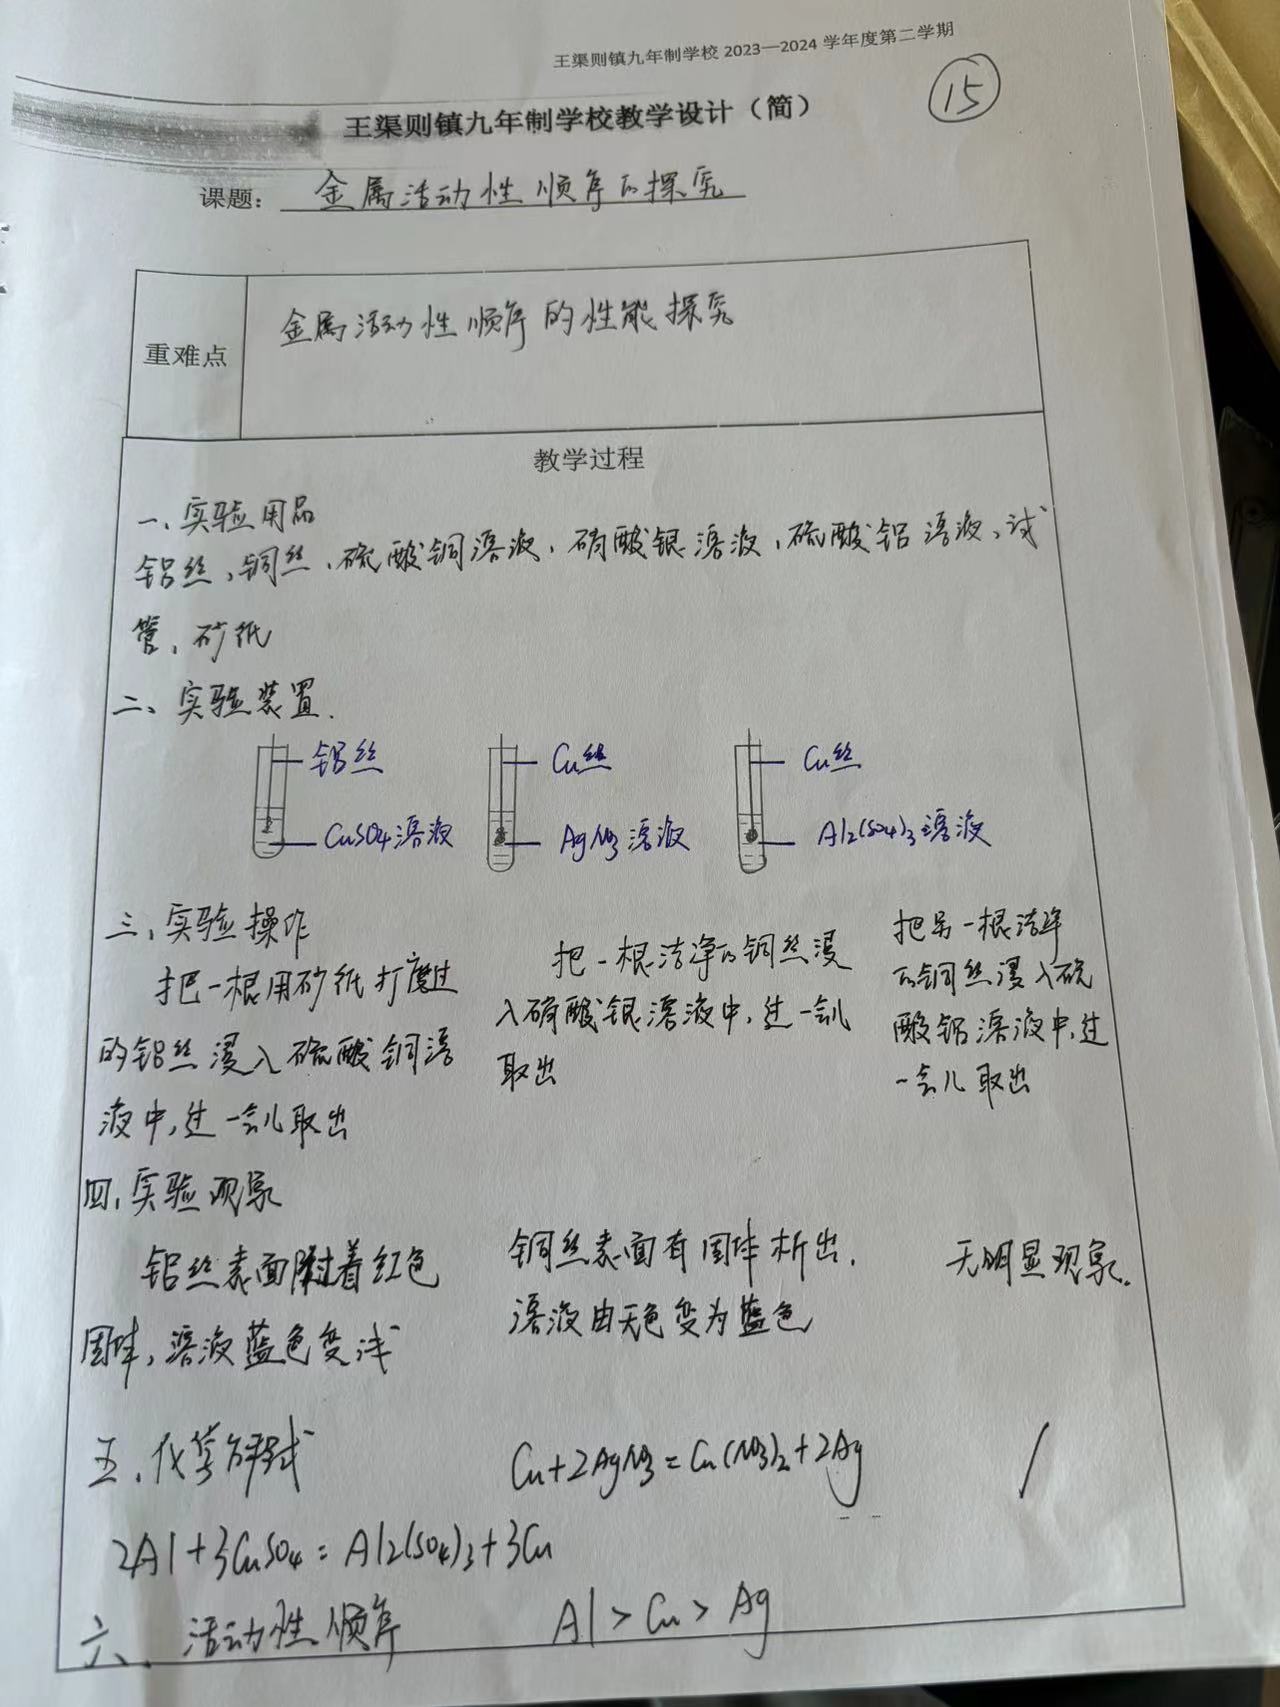 王渠则镇九年制学校 2023—2024 学年度第二学期
15
王渠则镇九年制学校教学设计（简）
课题： 金属活动性顺序的探究
重难点
金属活动性顺序的性能探究
教学过程
一、实验用品
铝丝、铜丝、硫酸铜溶液、硝酸银溶液、硫酸铝溶液、试
管、砂纸
二、实验装置.
铝丝
CuSO4溶液
Cu丝
AgNO3溶液
Cu丝
Al2(SO4)3溶液
三、实验操作
把一根用砂纸打磨过
的铝丝浸入硫酸铜溶
液中,过一会儿取出
把一根洁净的铜丝浸
入硝酸银溶液中,过一会儿
取出
把另一根洁净
的铜丝浸入硫
酸铝溶液中,过
一会儿取出
四、实验现象
铝丝表面附着红色
固体,溶液蓝色变浅
铜丝表面有固体析出.
溶液由无色变为蓝色
无明显现象.
五、化学方程式
2Al+3CuSO4=Al2(SO4)3+3Cu
Cu+2AgNO3=Cu(NO3)2+2Ag
/
六、活动性顺序
Al>Cu>Ag